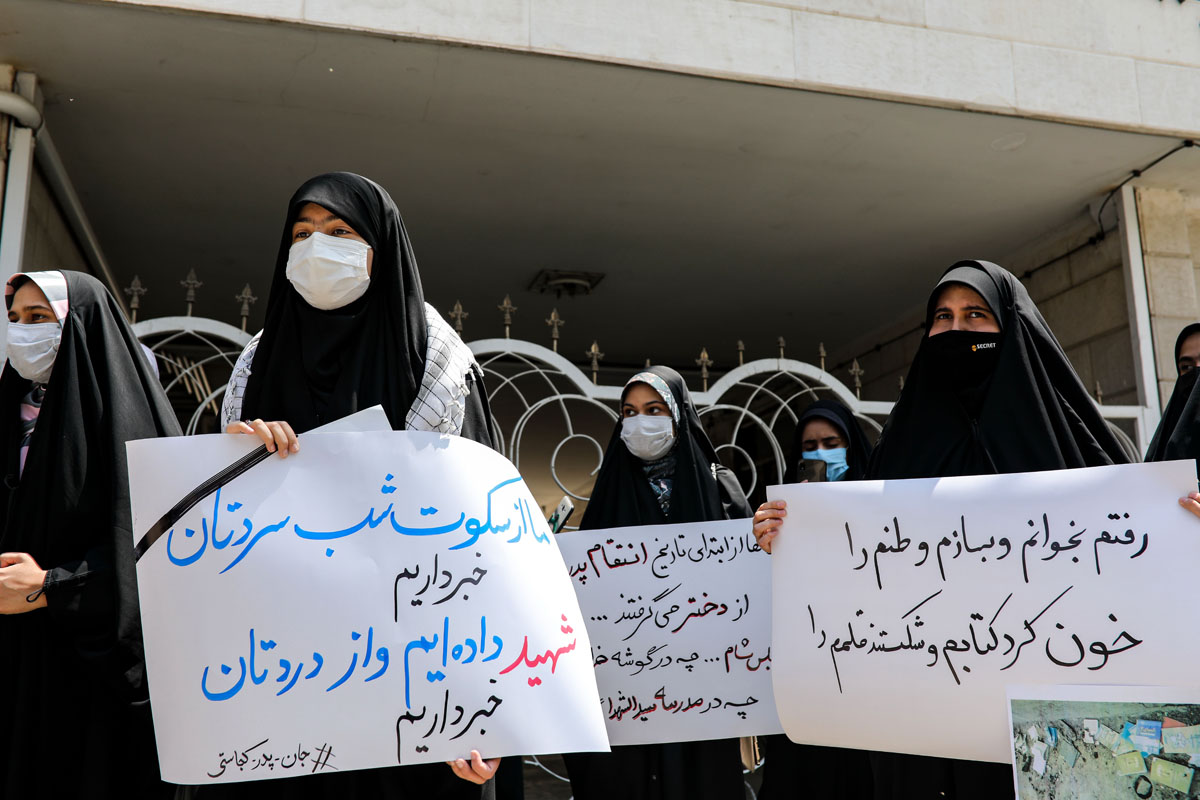 ما از سکوت شب سردتان
خبرداریم
شهید داده‌ایم و از دردتان
خبرداریم
#جان_پدر_کجاستی
ها از ابتدای تاریخ انتقام پدر
از دختر می‌گرفتند ...
شام ... چه در گوشه
چه در مدرسه سیدالشهدا
رفتم بخوانم و بسازم وطنم را
خون کرد کتابم و شکستند قلمم را
SECRET